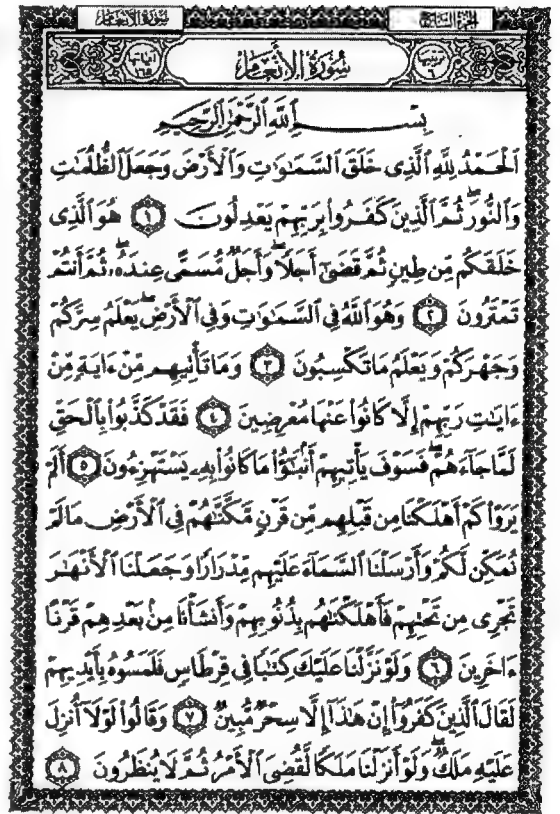 الجزء السابع سورة الأنعام
ترتيبها ٦ سُورَةُ الأَنْعَامِ آياتها ١٦٥
بِسْمِ ٱللَّهِ ٱلرَّحْمَٰنِ ٱلرَّحِيمِ
ٱلْحَمْدُ لِلَّهِ ٱلَّذِى خَلَقَ ٱلسَّمَٰوَٰتِ وَٱلْأَرْضَ وَجَعَلَ ٱلظُّلُمَٰتِ
وَٱلنُّورَ ۖ ثُمَّ ٱلَّذِينَ كَفَرُوا۟ بِرَبِّهِمْ يَعْدِلُونَ ١ هُوَ ٱلَّذِى
خَلَقَكُم مِّن طِينٍ ثُمَّ قَضَىٰٓ أَجَلًا ۖ وَأَجَلٌ مُّسَمًّى عِندَهُۥ ۖ ثُمَّ أَنتُمْ
تَمْتَرُونَ ٢ وَهُوَ ٱللَّهُ فِى ٱلسَّمَٰوَٰتِ وَفِى ٱلْأَرْضِ ۖ يَعْلَمُ سِرَّكُمْ
وَجَهْرَكُمْ وَيَعْلَمُ مَا تَكْسِبُونَ ٣ وَمَا تَأْتِيهِم مِّنْ ءَايَةٍ مِّنْ
ءَايَٰتِ رَبِّهِمْ إِلَّا كَانُوا۟ عَنْهَا مُعْرِضِينَ ٤ فَقَدْ كَذَّبُوا۟ بِٱلْحَقِّ
لَمَّا جَآءَهُمْ ۖ فَسَوْفَ يَأْتِيهِمْ أَنۢبَٰٓؤُا۟ مَا كَانُوا۟ بِهِۦ يَسْتَهْزِءُونَ ٥ أَلَمْ
يَرَوْا۟ كَمْ أَهْلَكْنَا مِن قَبْلِهِم مِّن قَرْنٍ مَّكَّنَّٰهُمْ فِى ٱلْأَرْضِ مَا لَمْ
نُمَكِّن لَّكُمْ وَأَرْسَلْنَا ٱلسَّمَآءَ عَلَيْهِم مِّدْرَارًا وَجَعَلْنَا ٱلْأَنْهَٰرَ
تَجْرِى مِن تَحْتِهِمْ فَأَهْلَكْنَٰهُم بِذُنُوبِهِمْ وَأَنشَأْنَا مِنۢ بَعْدِهِمْ قَرْنًا
ءَاخَرِينَ ٦ وَلَوْ نَزَّلْنَا عَلَيْكَ كِتَٰبًا فِى قِرْطَاسٍ فَلَمَسُوهُ بِأَيْدِيهِمْ
لَقَالَ ٱلَّذِينَ كَفَرُوٓا۟ إِنْ هَٰذَآ إِلَّا سِحْرٌ مُّبِينٌ ٧ وَقَالُوا۟ لَوْلَآ أُنزِلَ
عَلَيْهِ مَلَكٌ ۖ وَلَوْ أَنزَلْنَا مَلَكًا لَّقُضِىَ ٱلْأَمْرُ ثُمَّ لَا يُنظَرُونَ ٨